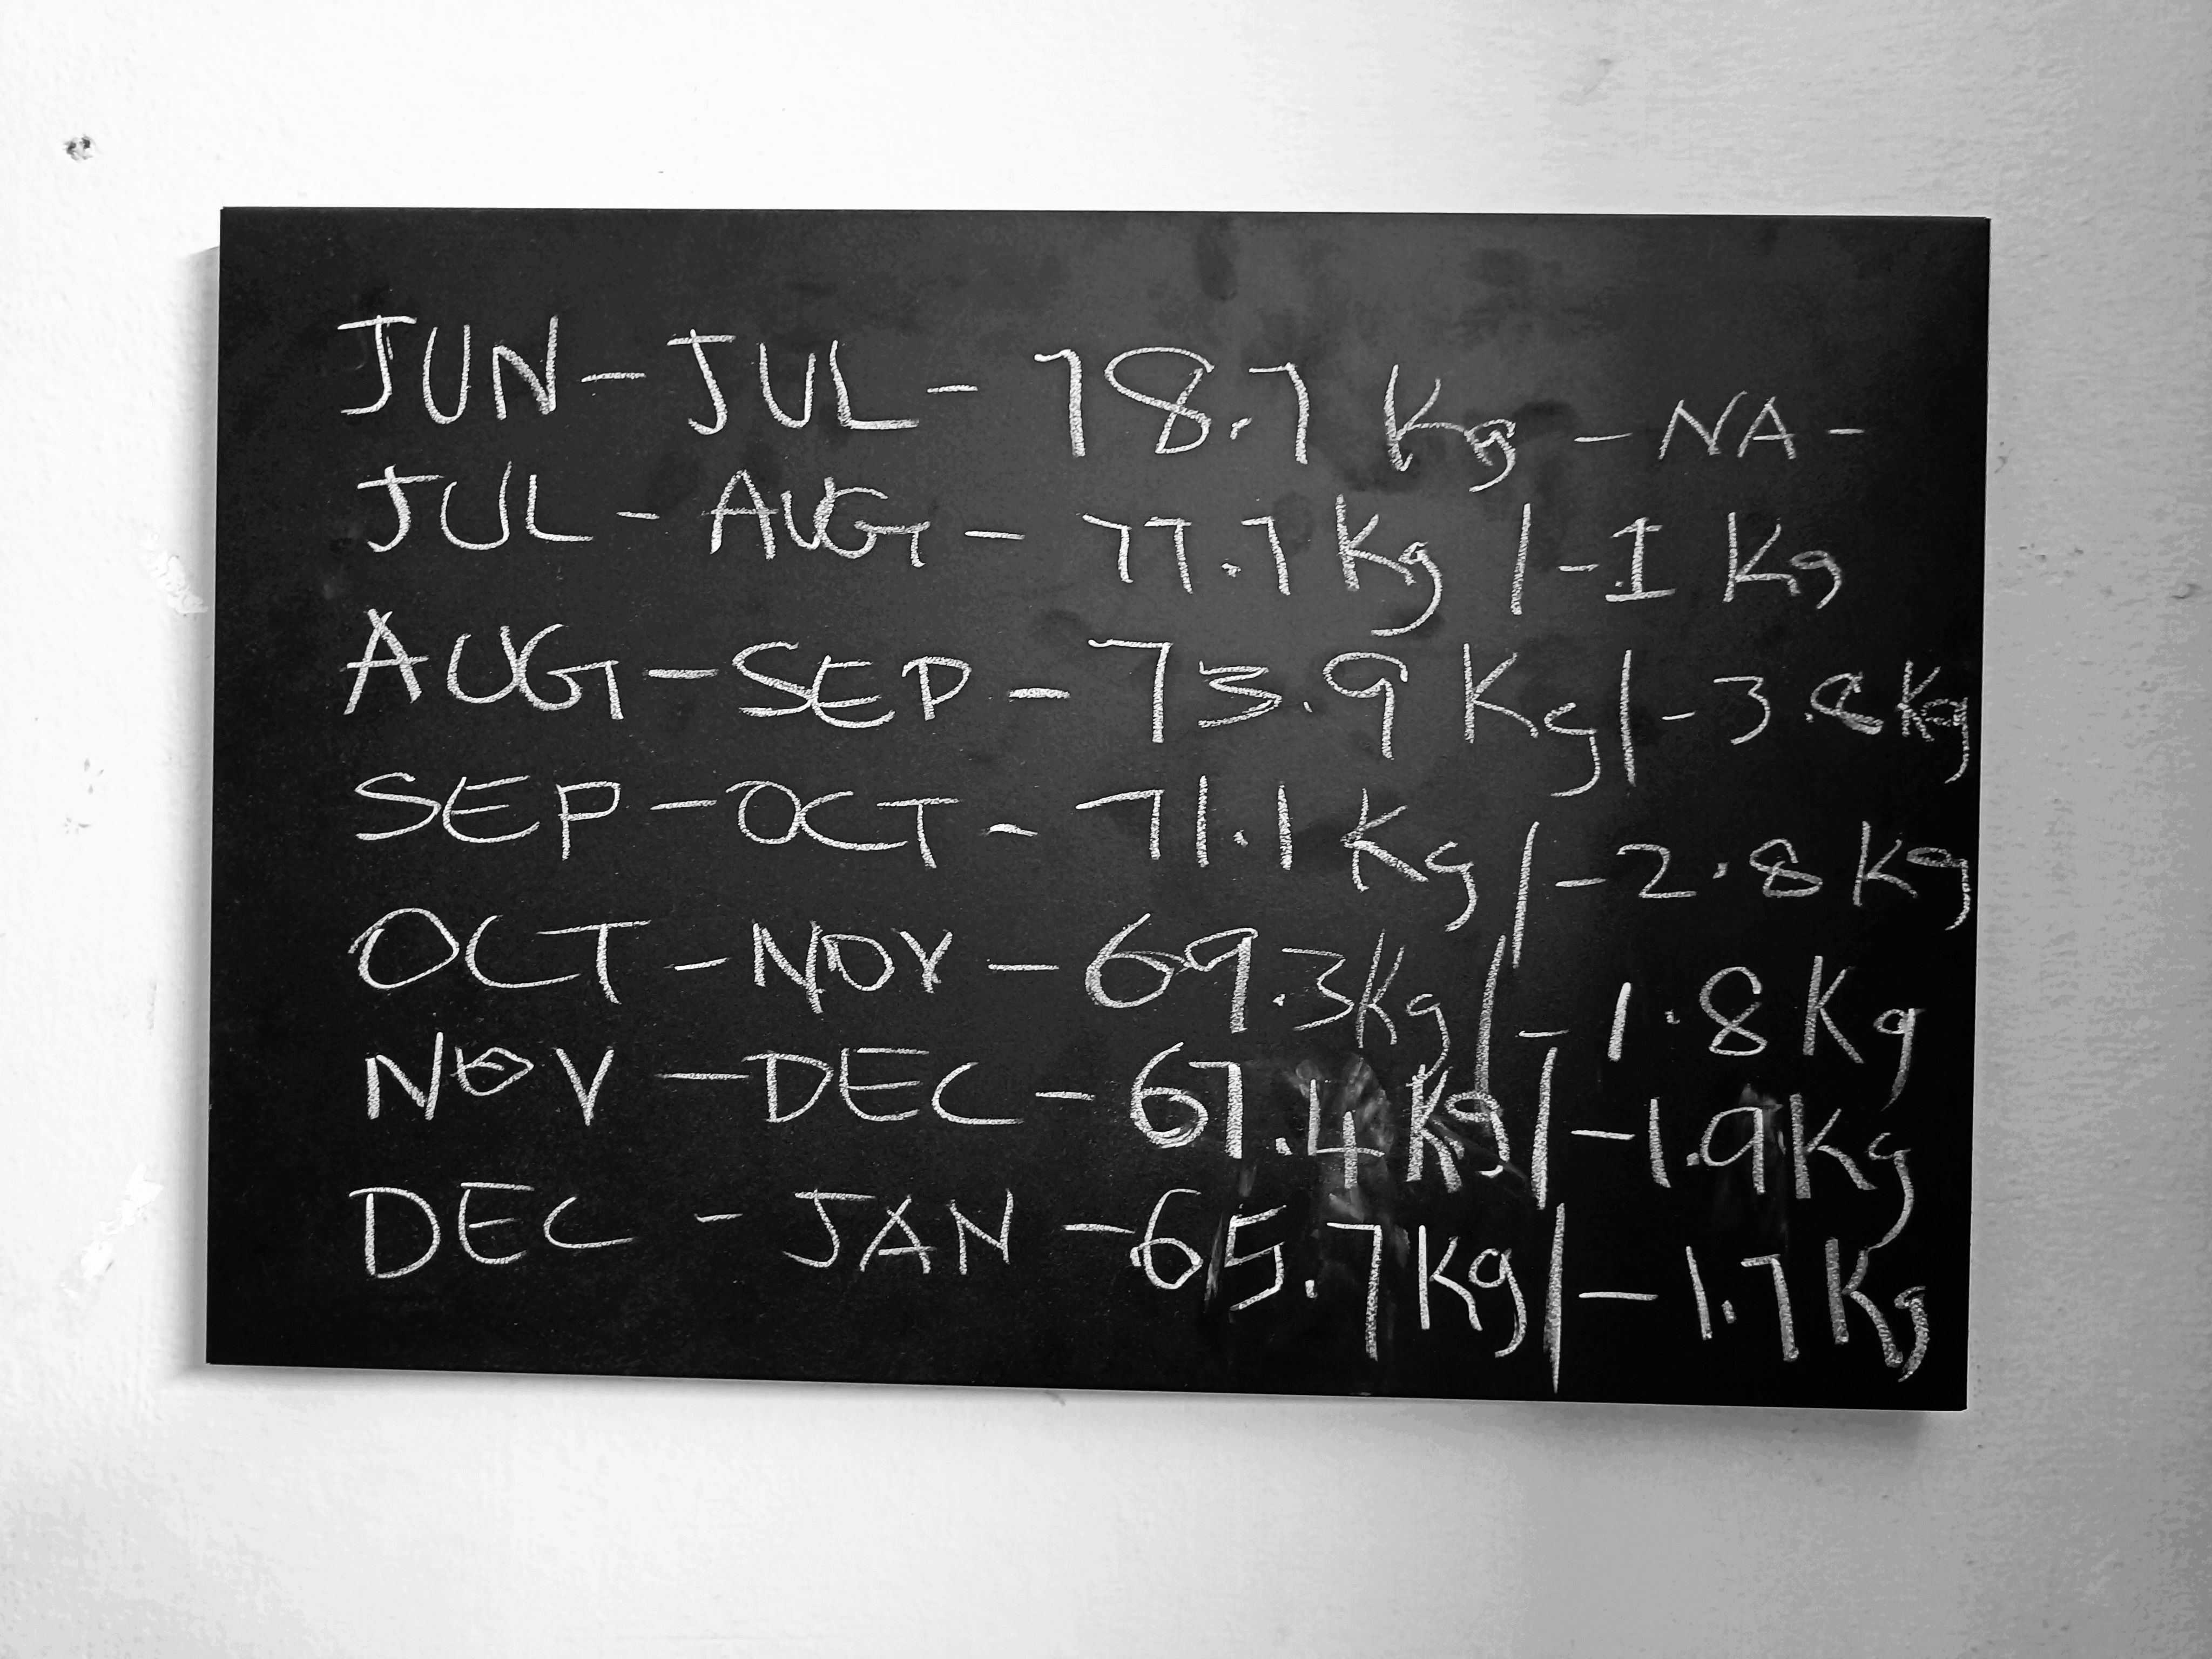 JUN - JUL - 78.7 Kg - NA -
JUL - AUG - 77.7 Kg | -1 Kg
AUG - SEP - 73.9 Kg | - 3.8 Kg
SEP - OCT - 71.1 Kg | - 2.8 Kg
OCT - NOV - 69.3 Kg | - 1.8 Kg
NOV - DEC - 67.4 Kg | - 1.9 Kg
DEC - JAN - 65.7 Kg | - 1.7 Kg